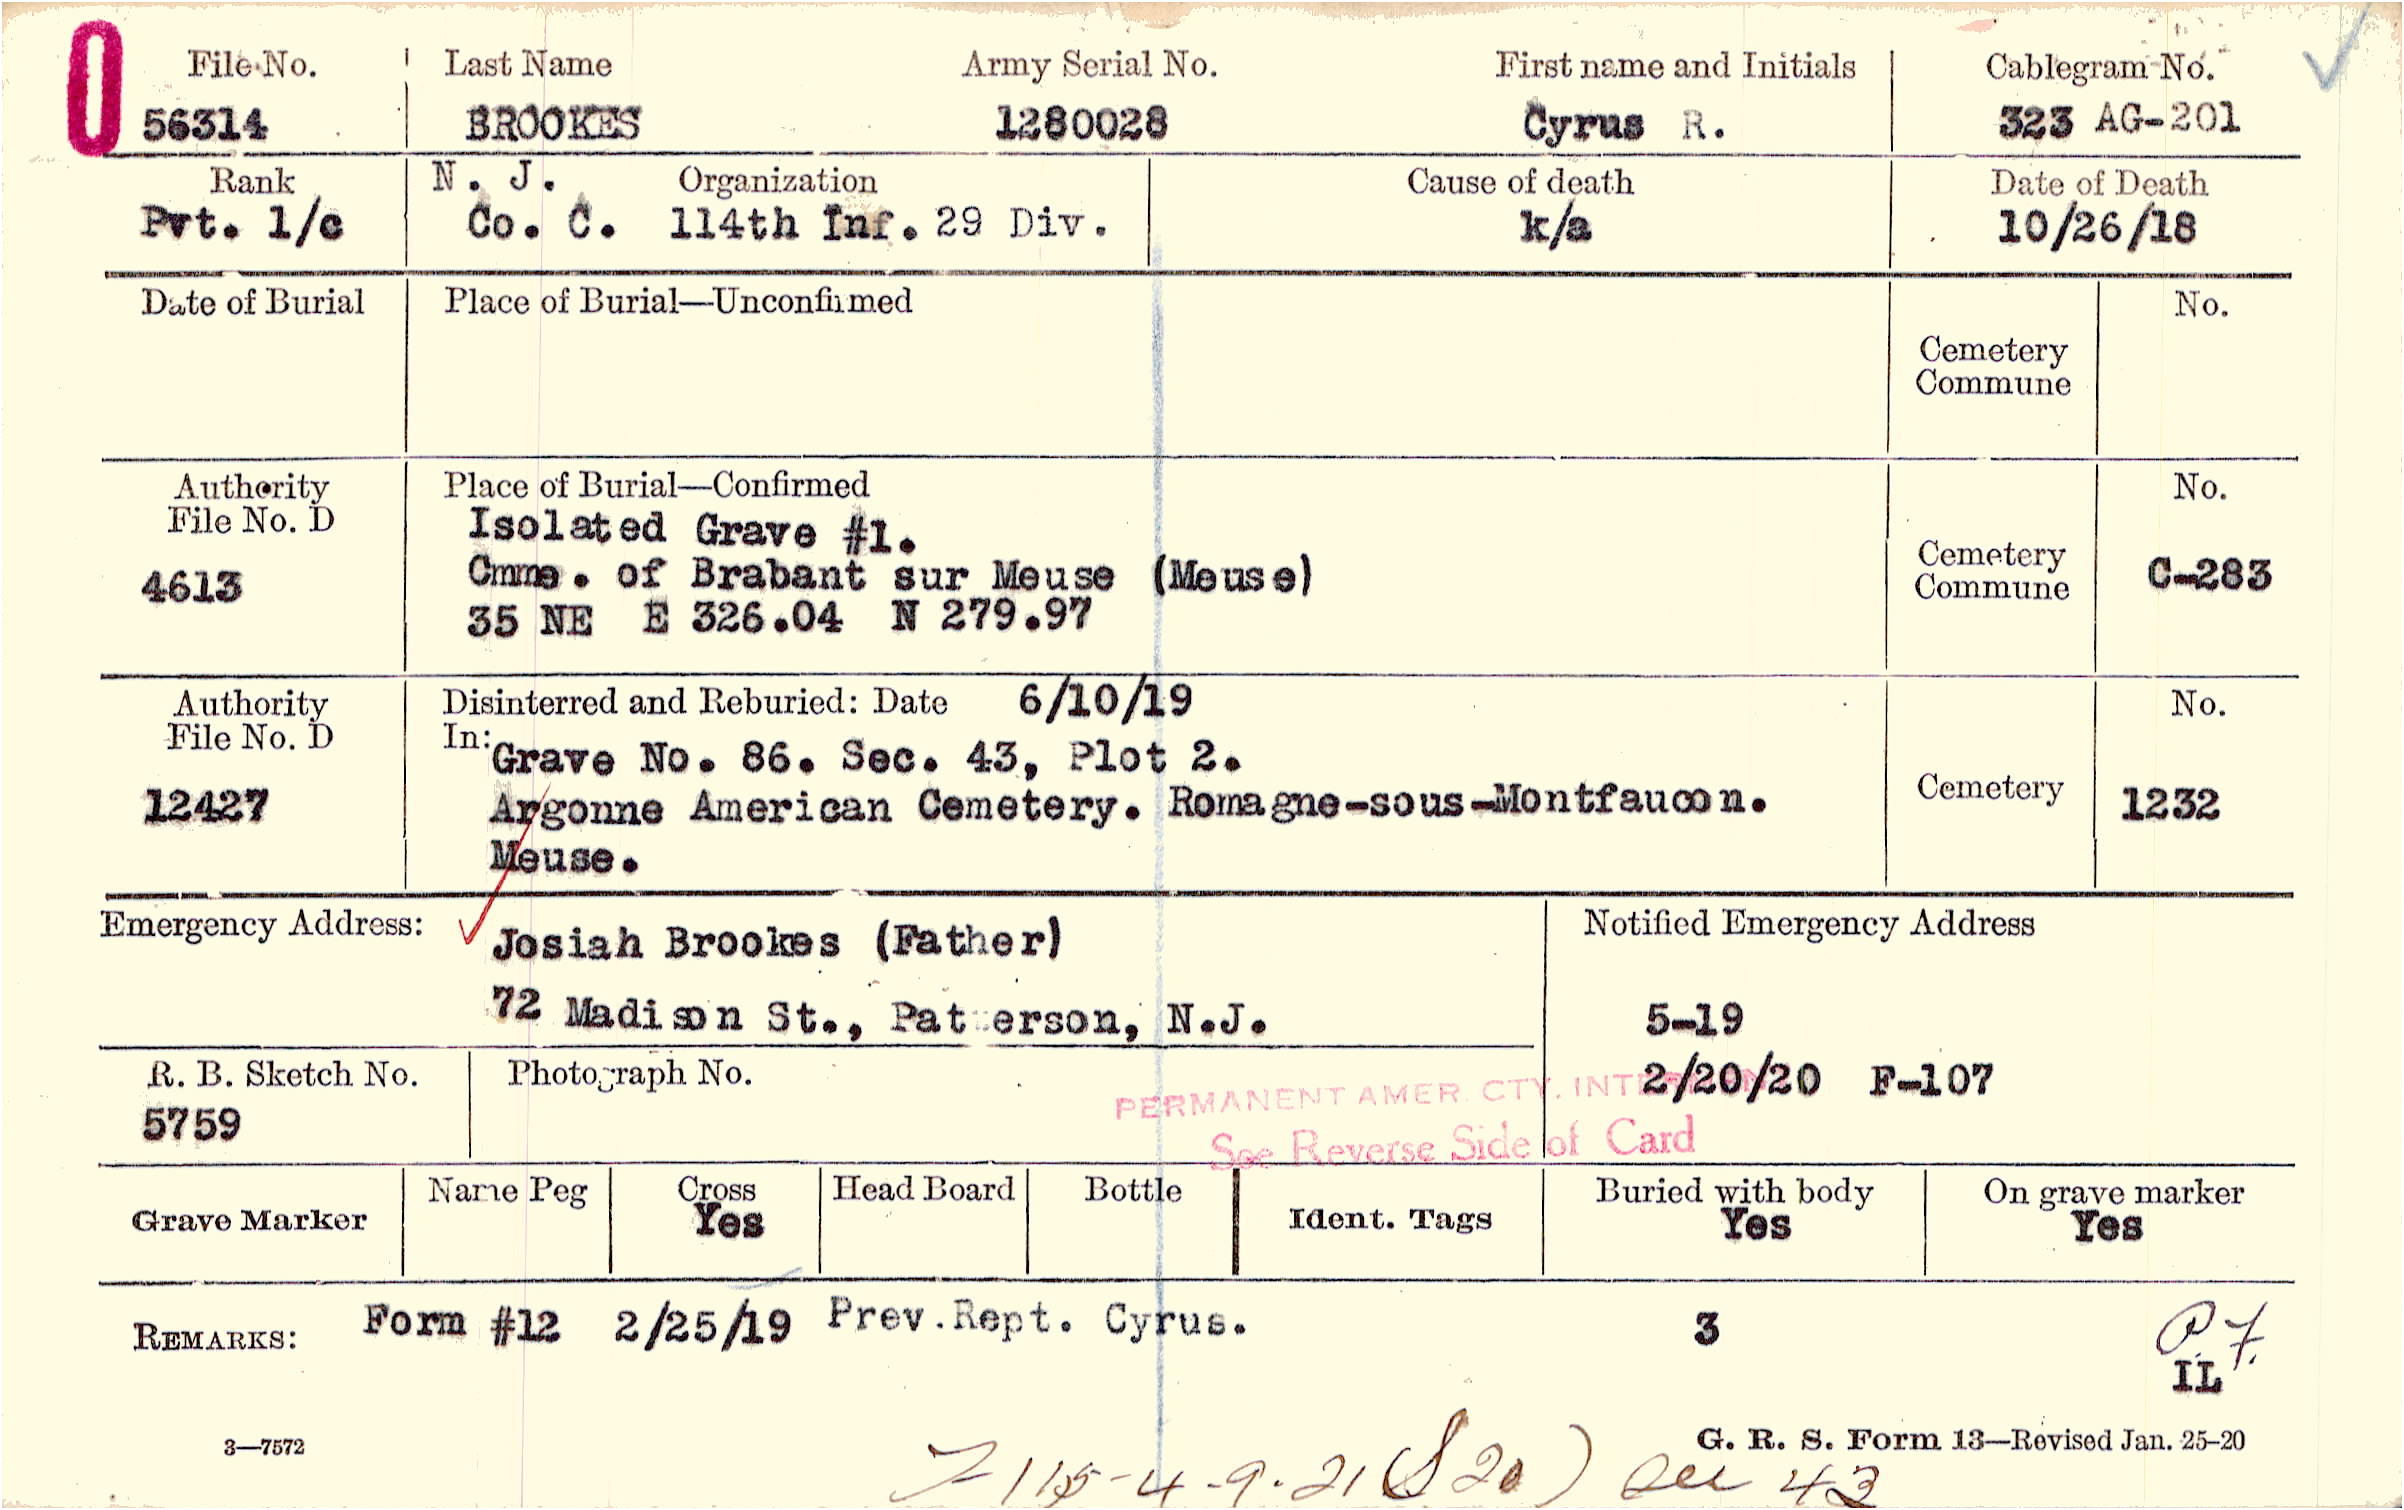 0
File No. Last Name Army Serial No. First name and Initials Cablegram No.
56314 BROOKES 1280028 Cyrus R. 323 AG-201
Rank N. J. Organization Cause of death Date of Death
Pvt. 1/c Co. C. 114th Inf. 29 Div. k/a 10/26/18
Date of Burial Place of Burial—Unconfirmed No.
Cemetery
Commune
Authority Place of Burial—Confirmed No.
File No. D Isolated Grave #1.
4613 Cmme. of Brabant sur Meuse (Meuse) Cemetery
Commune C-283
35 NE E 326.04 N 279.97
Authority Disinterred and Reburied: Date 6/10/19 No.
File No. D In: Grave No. 86. Sec. 43, Plot 2.
12427 Argonne American Cemetery. Romagne-sous-Montfaucon. Cemetery 1232
Meuse.
Emergency Address: Josiah Brookes (Father) Notified Emergency Address
72 Madison St., Patterson, N.J. 5-19
R. B. Sketch No. Photograph No. 2/20/20 F-107
5759 PERMANENT AMER. CTY.
See Reverse Side of Card
Grave Marker Name Peg Cross Head Board Bottle Ident. Tags Buried with body On grave marker
Yes Yes Yes
REMARKS: Form #12 2/25/19 Prev.Rept. Cyrus. 3 P.7.
IL
3—7572 G. R. S. Form 13—Revised Jan. 25-20
115-4-9-21 (S20) 43